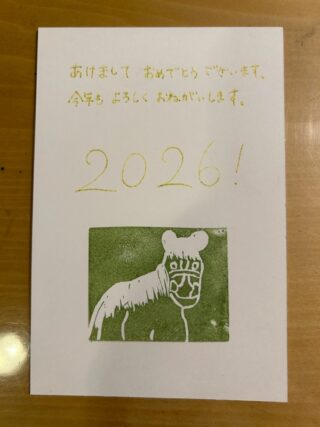 あけまして おめでとう ございます、
今年も よろしく おねがいします。
2026!